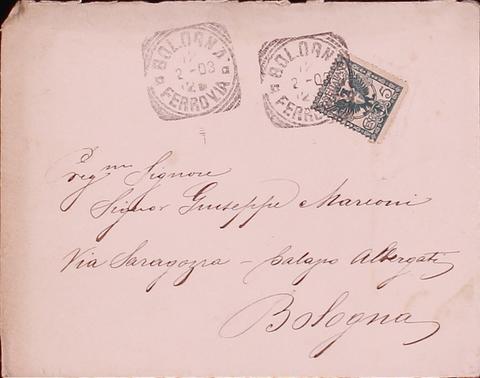 BOLOGNA
12
2-03
12
FERROVIA
BOLOGNA
12
2-03
12
FERROVIA
5
Preg.mo Signore
Signor Giuseppe Marconi
Via Saragozza - Palazzo Albergati
Bologna